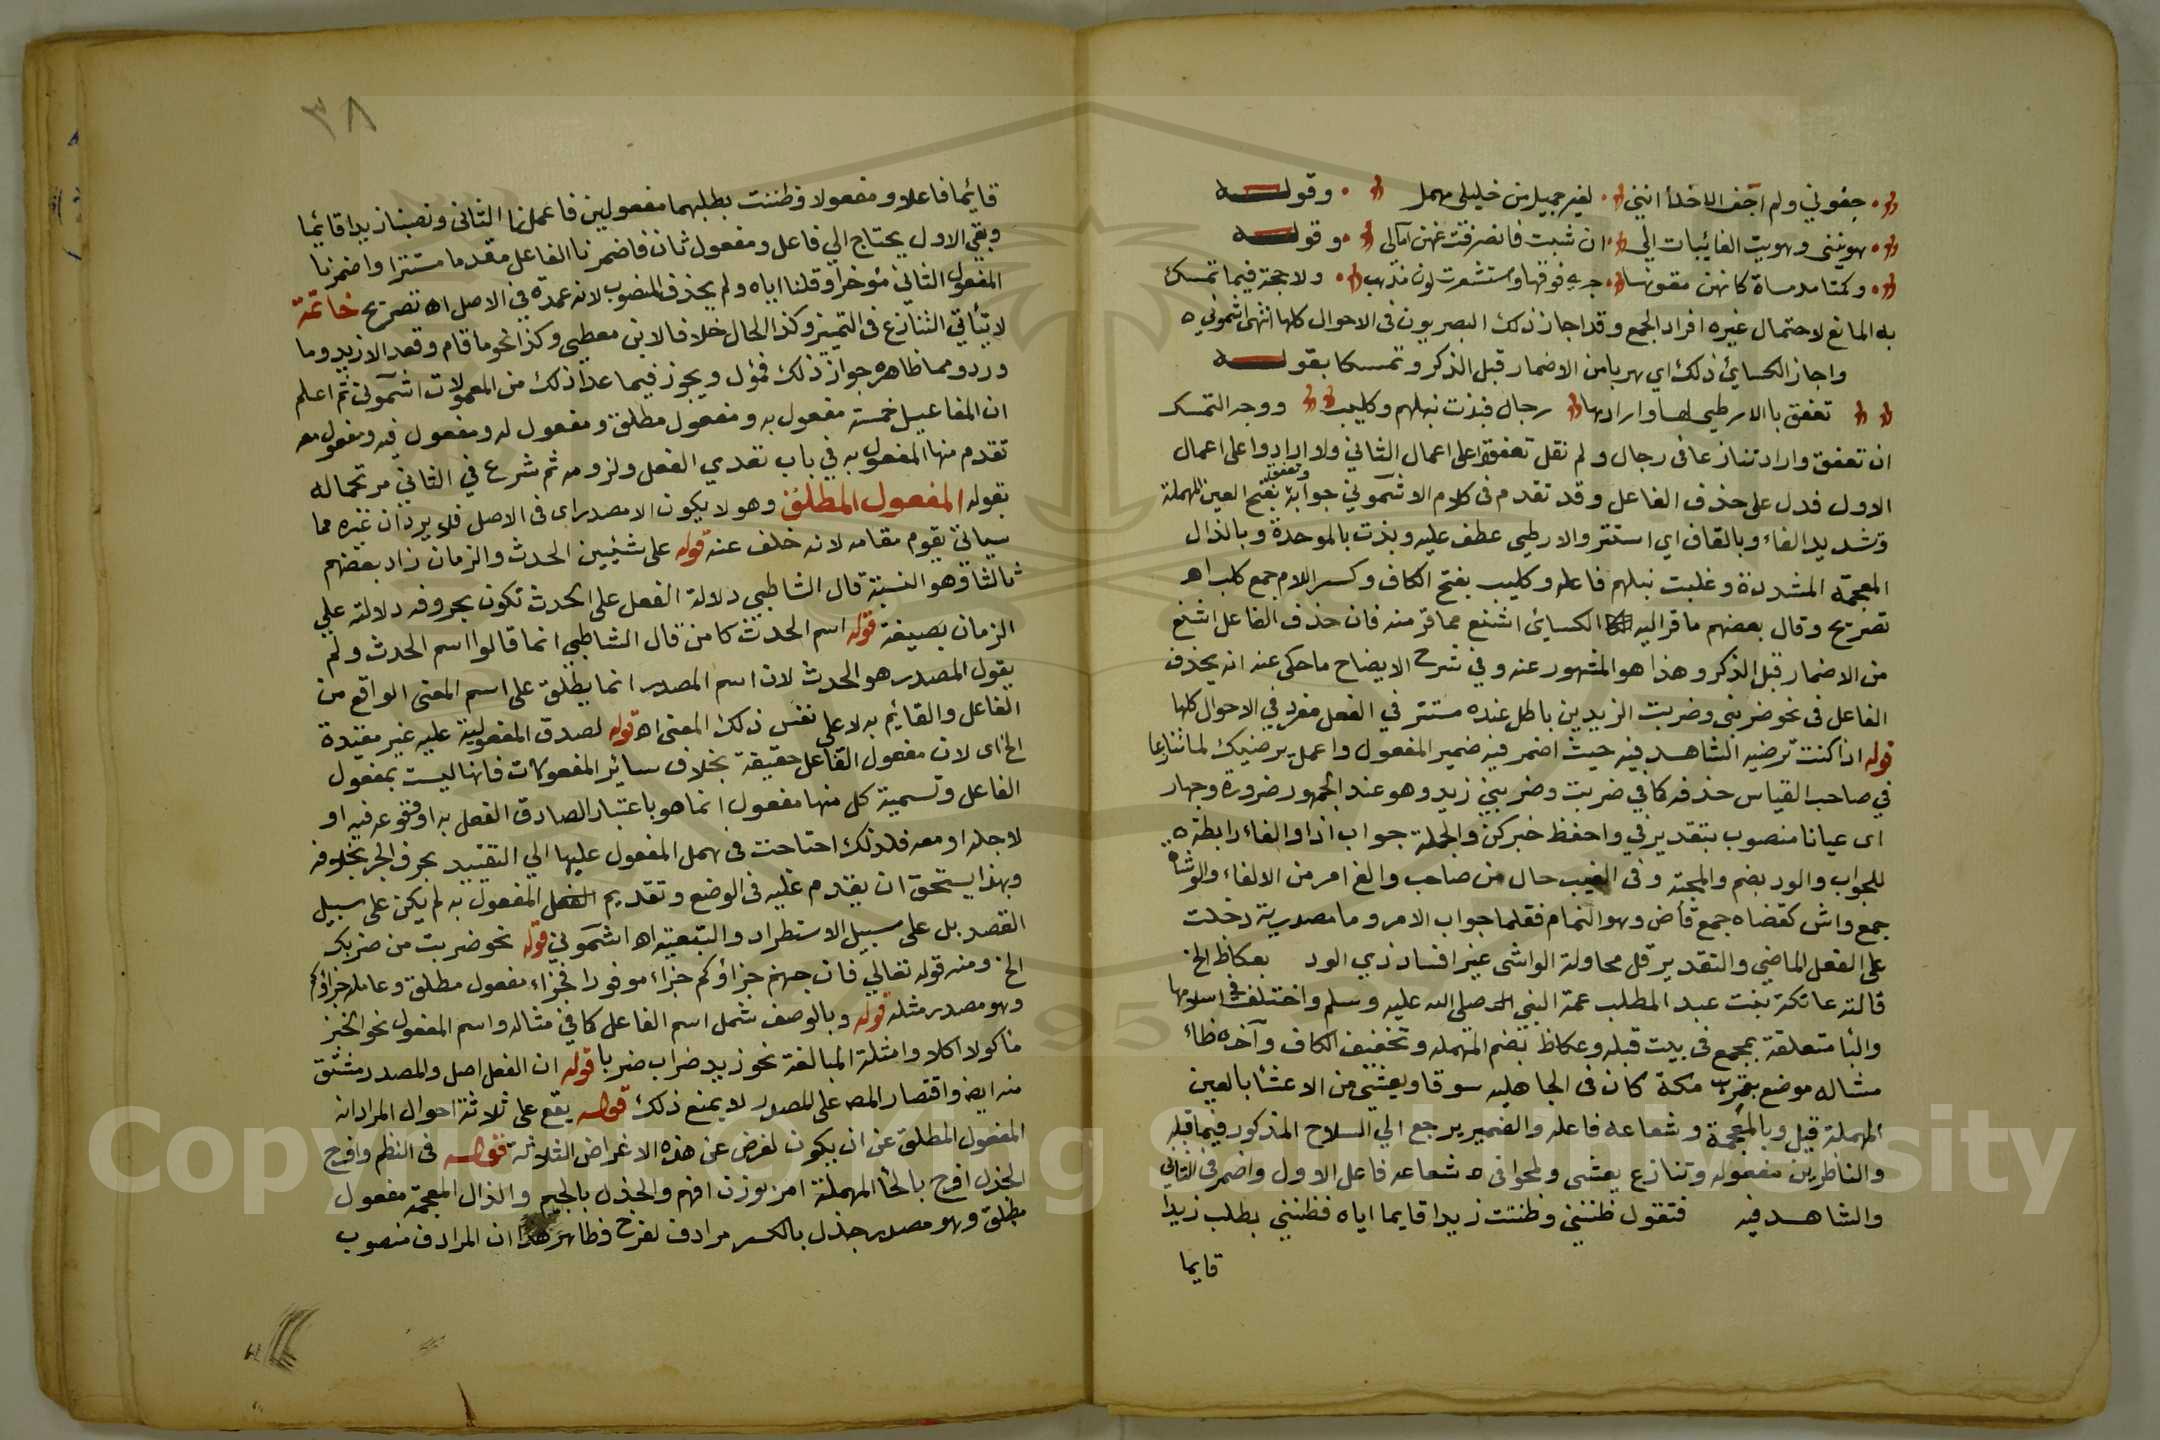 جفوني ولم اجف الاخلا انني لغير جميل من خليلي مهمل وقوله
هوينني وهويت الغانيات الي ان شبت فانصرفت عنهن امالي وقوله
وكمتا مدماة كان متونها جري فوقها واستشعرت لون مذهب ولا حجة فيما تمسك
به المانع لاحتمال غيره افراد الجمع وقد اجاز ذلك البصريون في الاحوال كلها انتهى اشموني ه
واجاز الكسائي ذلك اي هربا من الاضمار قبل الذكر وتمسكا بقوله
تعفق بالارطي لها وارادها رجال فبذت نبلهم وكليب ووجه التمسك
ان تعفق واراد تنازعا في رجال ولم نقل تعفقوا على اعمال الثاني ولا ارادوا على اعمال
الاول فدل على حذف الفاعل وقد تقدم في كلام الاشموني جوابه وتعفق بفتح العين المهملة
وتشديد الفاء وبالقاف اي استتر والارطي عطف عليه وبذت بالموحدة وبالذال
المعجمة المشددة وغلبت نبلهم فاعله وكليب بفتح الكاف وكسر اللام جمع كلب اه
تصريح وقال بعضهم ما فر اليه الكسائي اشنع مما فر منه فان حذف الفاعل اشنع
من الاضمار قبل الذكر وهذا هو المشهور عنه وفي شرح الايضاح ما حكى عنه انه يحذف
الفاعل في نحو ضربني وضربت الزيدين باطل عنده مستتر في الفعل مفرد في الاحوال كلها
قوله اذا كنت ترضيه الشاهد فيه حيث اضمر فيه ضمير المفعول واعمل يرضيك لما تنازعا
في صاحب القياس حذفه كما في ضربت وضربني زيد وهو عند الجمهور ضرورة وجهار
اى عيانا منصوب بتقدير في واحفظ خبر كن والجملة جواب اذا والفاء رابطة ه
للجواب والود بضم والمحبة وفى الغيب حال من صاحب والغ امر من الالغاء والوشاه
جمع واش كقضاه جمع قاض وهو النمام فقلما جواب الامر وما مصدرية دخلت
على الفعل الماضي والتقدير قل محاولة الواشى غير افساد ذي الود بعكاظ الخ
قالته عاتكة بنت عبد المطلب عمة النبي صلى الله عليه وسلم واختلف في اسلامها
والبا متعلقة بمجمع في بيت قبله وعكاظ بضم المهملة وتخفيف الكاف وآخره ظاء
مشاله موضع بقرب مكة كان فى الجاهليه سوقا ويعشي من الاعشا بالعين
المهملة قيل وبالمعجمة وشعاعه فاعله والضمير يرجع الي السلاح المذكور فيما قبله
والناظرين مفعوله وتنازع يعشى ولمحوا في شعاعه فاعل الاول واضمر في الثاني
والشاهد فيه فتقول ظنني وظننت زيدا قايما اياه فظنني يطلب زيدا
قايما
٣٨
قائما فاعلا ومفعولا وظننت يطلبهما مفعولين فاعملنا الثانى ونصبنا زيدا قائما
وبقي الاول يحتاج الي فاعل ومفعول ثان فاضمرنا الفاعل مقدما مستترا واضمرنا
المفعول الثاني مؤخرا وقلنا اياه ولم يحذف المنصوب لانه عمدة في الاصل اه تصريح خاتمة
لا يتأتي التنازع فى التمييز وكذا الحال خلافا لابن معطي وكذا نحو ما قام وقعد الا زيد وما
ورد ومما ظاهره جواز ذلك فمؤل ويجوز فيما عدا ذلك من المعمولات اشموني ثم اعلم
ان المفاعيل خمسة مفعول به ومفعول مطلق ومفعول له ومفعول فيه ومفعول معه
تقدم منها المفعول به في باب تعدي الفعل ولزومه ثم شرع في الثاني مرتحماله
بقوله المفعول المطلق وهو لا يكون الا مصدرا اى فى الاصل فلا يرد ان غيره مما
سياتي يقوم مقامه لانه خلف عنه قوله على شئيين الحدث والزمان زاد بعضهم
ثالثا وهو النسبة قال الشاطبي دلالة الفعل على الحدث تكون بحروفه دلالته علي
الزمان بصيغة قوله اسم الحدث كامن قال الشاطبي انما قالوا اسم الحدث ولم
يقول المصدر هو الحدث لان اسم المصدر انما يطلق على اسم المعنى الواقع من
الفاعل والقايم به لا على نفس ذلك المعنى اه قوله لصدق المفعولية عليه غير مقيدة
الخ اى لان مفعول الفاعل حقيقة بخلاف سائر المفعولات فانها ليست بمفعول
الفاعل وتسمية كل منها مفعول انما هو باعتبار الصادق الفعل به او وقوعه فيه او
لاجله او معه فلذلك احتاجت فى بهمل المفعول عليها الي التقييد بحرف الجر بخلافه
وبهذا يستحق ان يقدم عليه فى الوضع وتقديم المفعول به لم يكن على سبيل
القصد بل على سبيل الاستطراد والتبعية اه اشموني قوله نحو ضربت من ضربك
الخ ومنه قوله تعالي فان جهنم جزاؤكم جزاء موفورا فجزاء مفعول مطلق وعامله جزاؤكم
وهو مصدر مثله قوله وبالوصف شمل اسم الفاعل كما في مثاله واسم المفعول نحو الخبز
ماكولا اكلا وامثلة المبالغة نحو زيد ضراب ضربا قوله ان الفعل اصل والمصدر مشتق
منه ايضا واقتصار المصه على المصدر لا يمنع ذلك قوله يقع على ثلاثة احوال المرادانه
المفعول المطلق عن ان يكون لغرض عن هذه الاغراض الثلاثة قوله فى النظم وافرح
الجذل افرح بالحا المهملة امر بوزن افهم والجذل بالجيم والذال المعجمة مفعول
مطلق وهو مصدر جذل بالكسر مرادف لفرح وظاهر هذا ان المرادف منصوب
Copyright © King Saud University